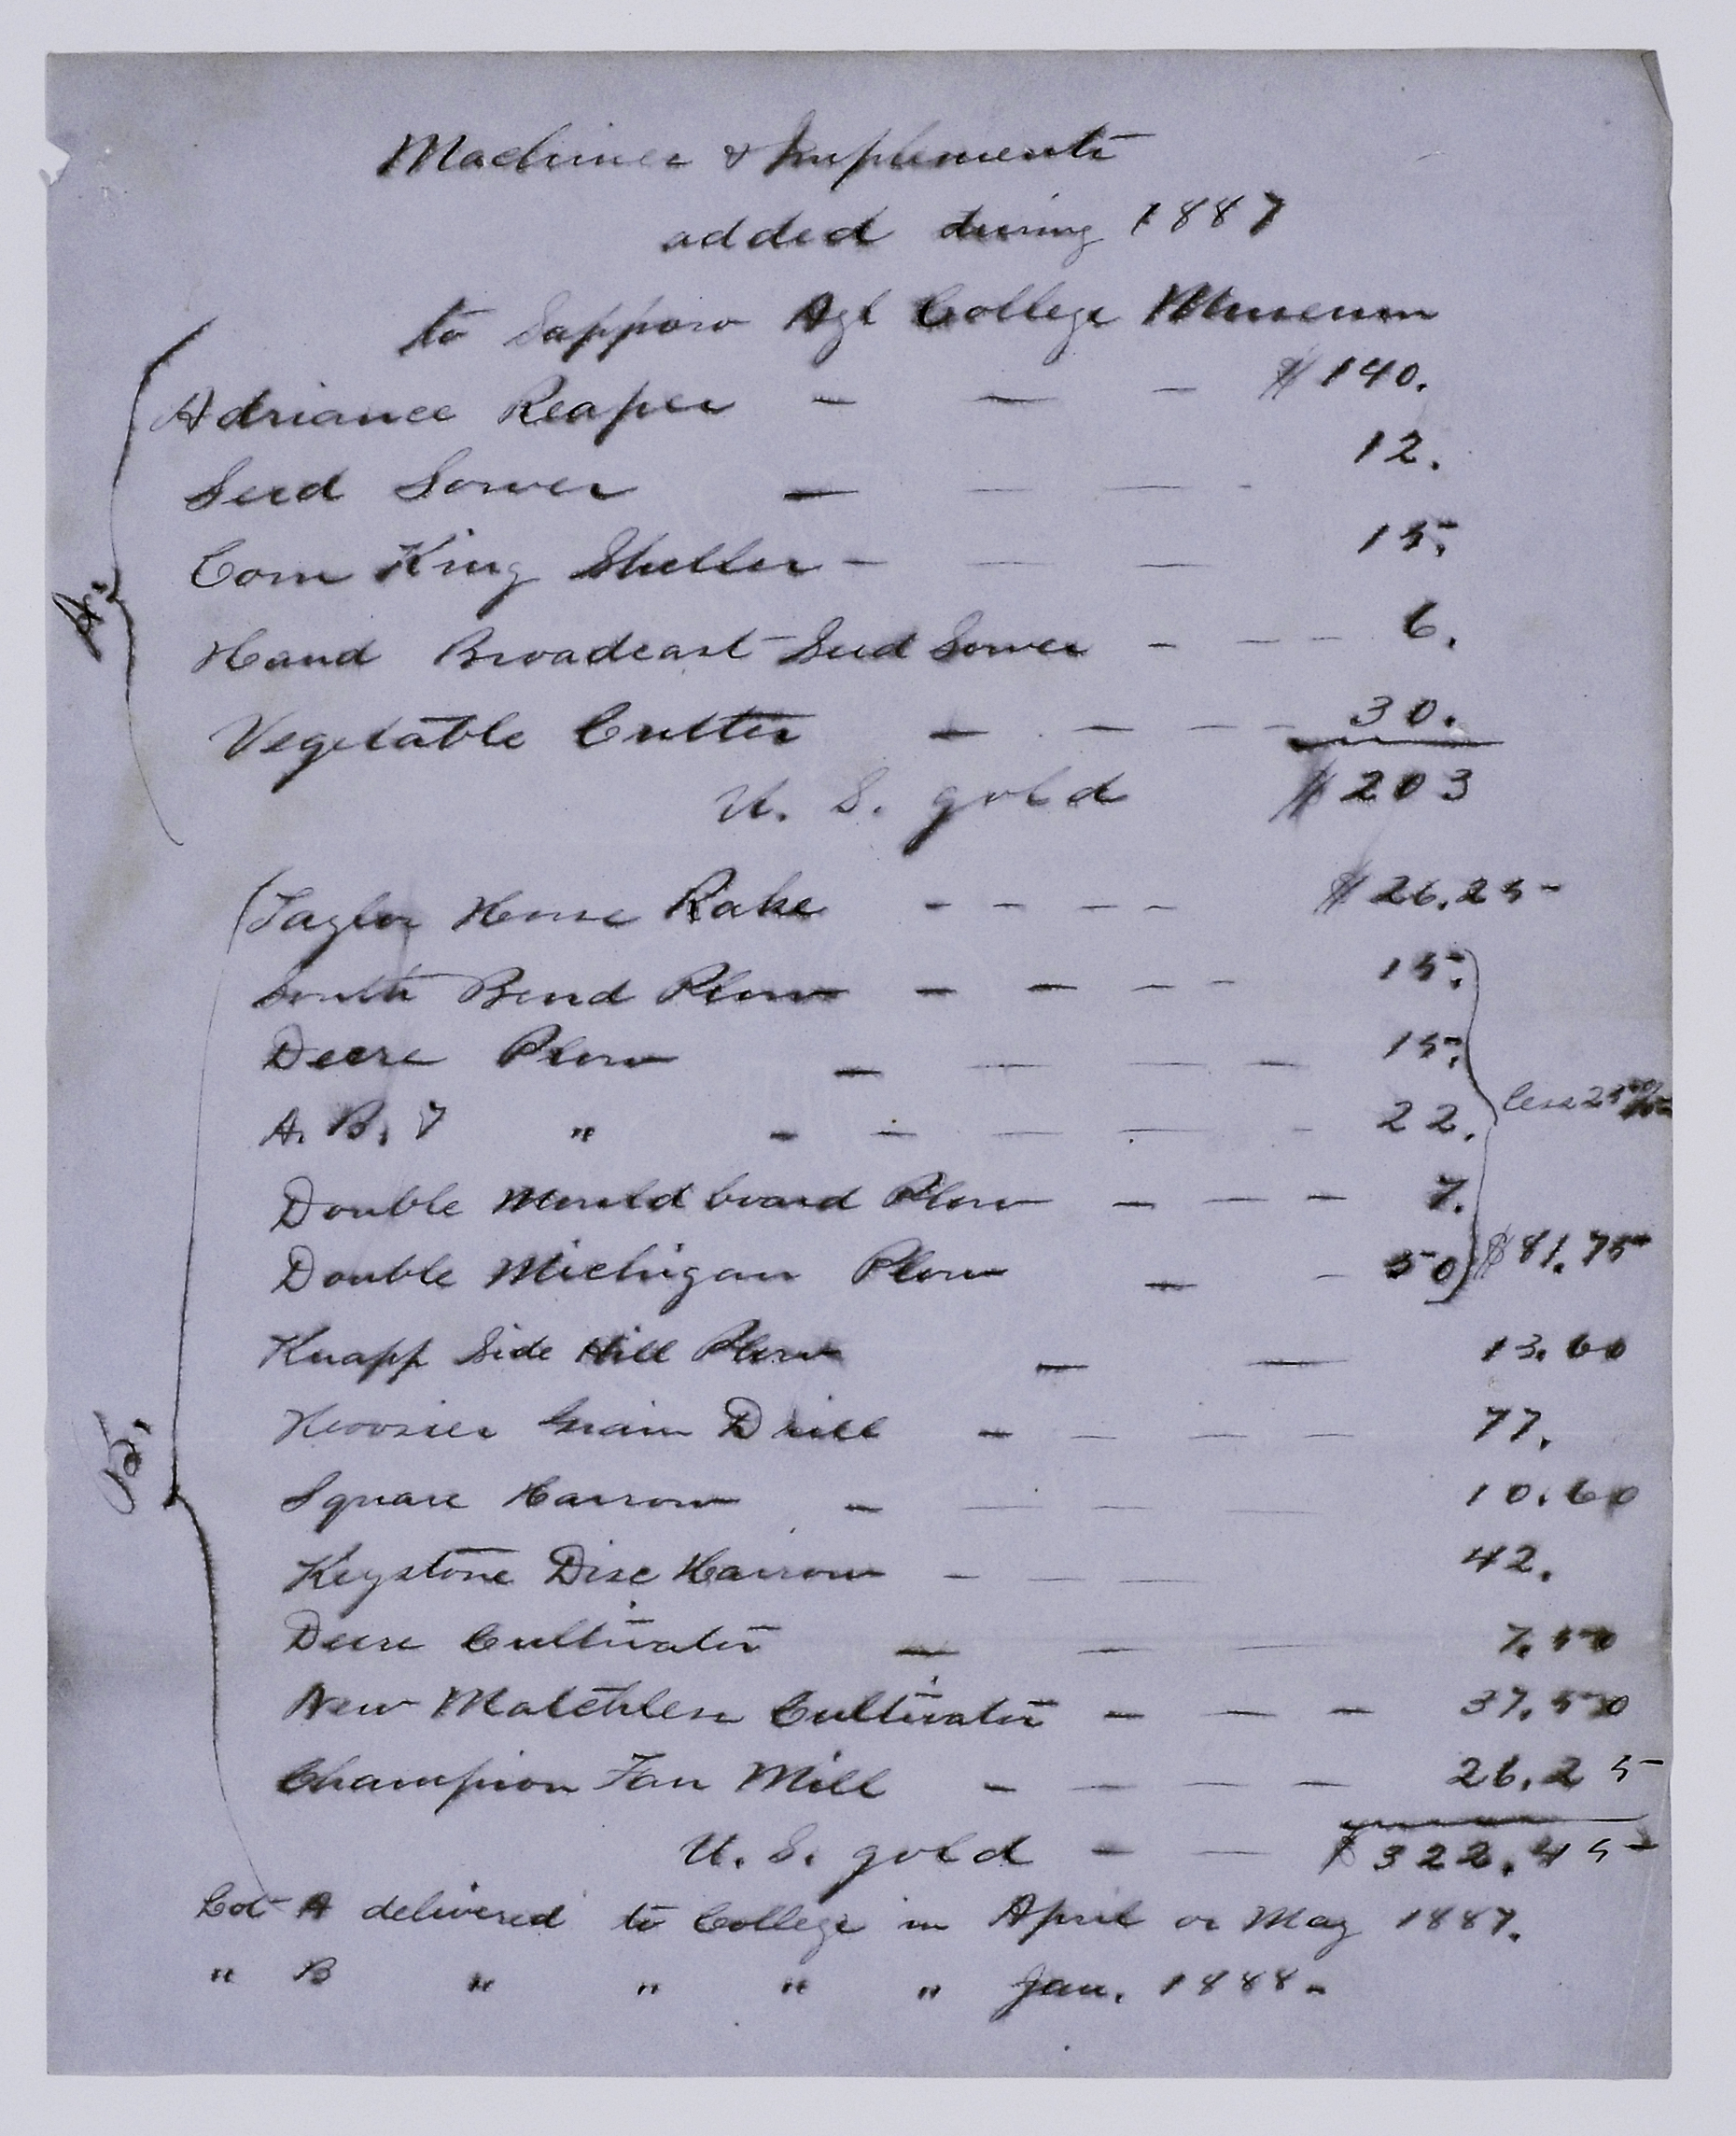 Machines & Implements
added during 1887
to Sapporo Agl College Museum
A.
Adriance Reaper — — — $140.
Seed Sower — — — - 12.
Corn King Sheller - — — 15.
Hand Broadcast Seed Sower - — — - 6.
Vegetable Cutter — — — - 30.
U. S. gold $203
B.
Taylor Horse Rake - - - - $26.25
South Bend Plow - - - - 15.
Deere Plow — — — — 15.
less 25%
A. B. 7 " - - — — - 22.
Double Mouldboard Plow — — — 7.
Double Michigan Plow — - 50 $81.75
Knapp Side Hill Plow — — 13.60
Hoosier Grain Drill - - - - 77.
Square Harrow - — — — 10.60
Keystone Disc Harrow - — — 42.
Deere Cultivator — — — 7.50
New Matchless Cultivator - — — 37.50
Champion Fan Mill - — — — 26.25
U. S. gold - — $322.45
Lot A delivered to College in April or May 1887.
" B " " " " Jan. 1888.